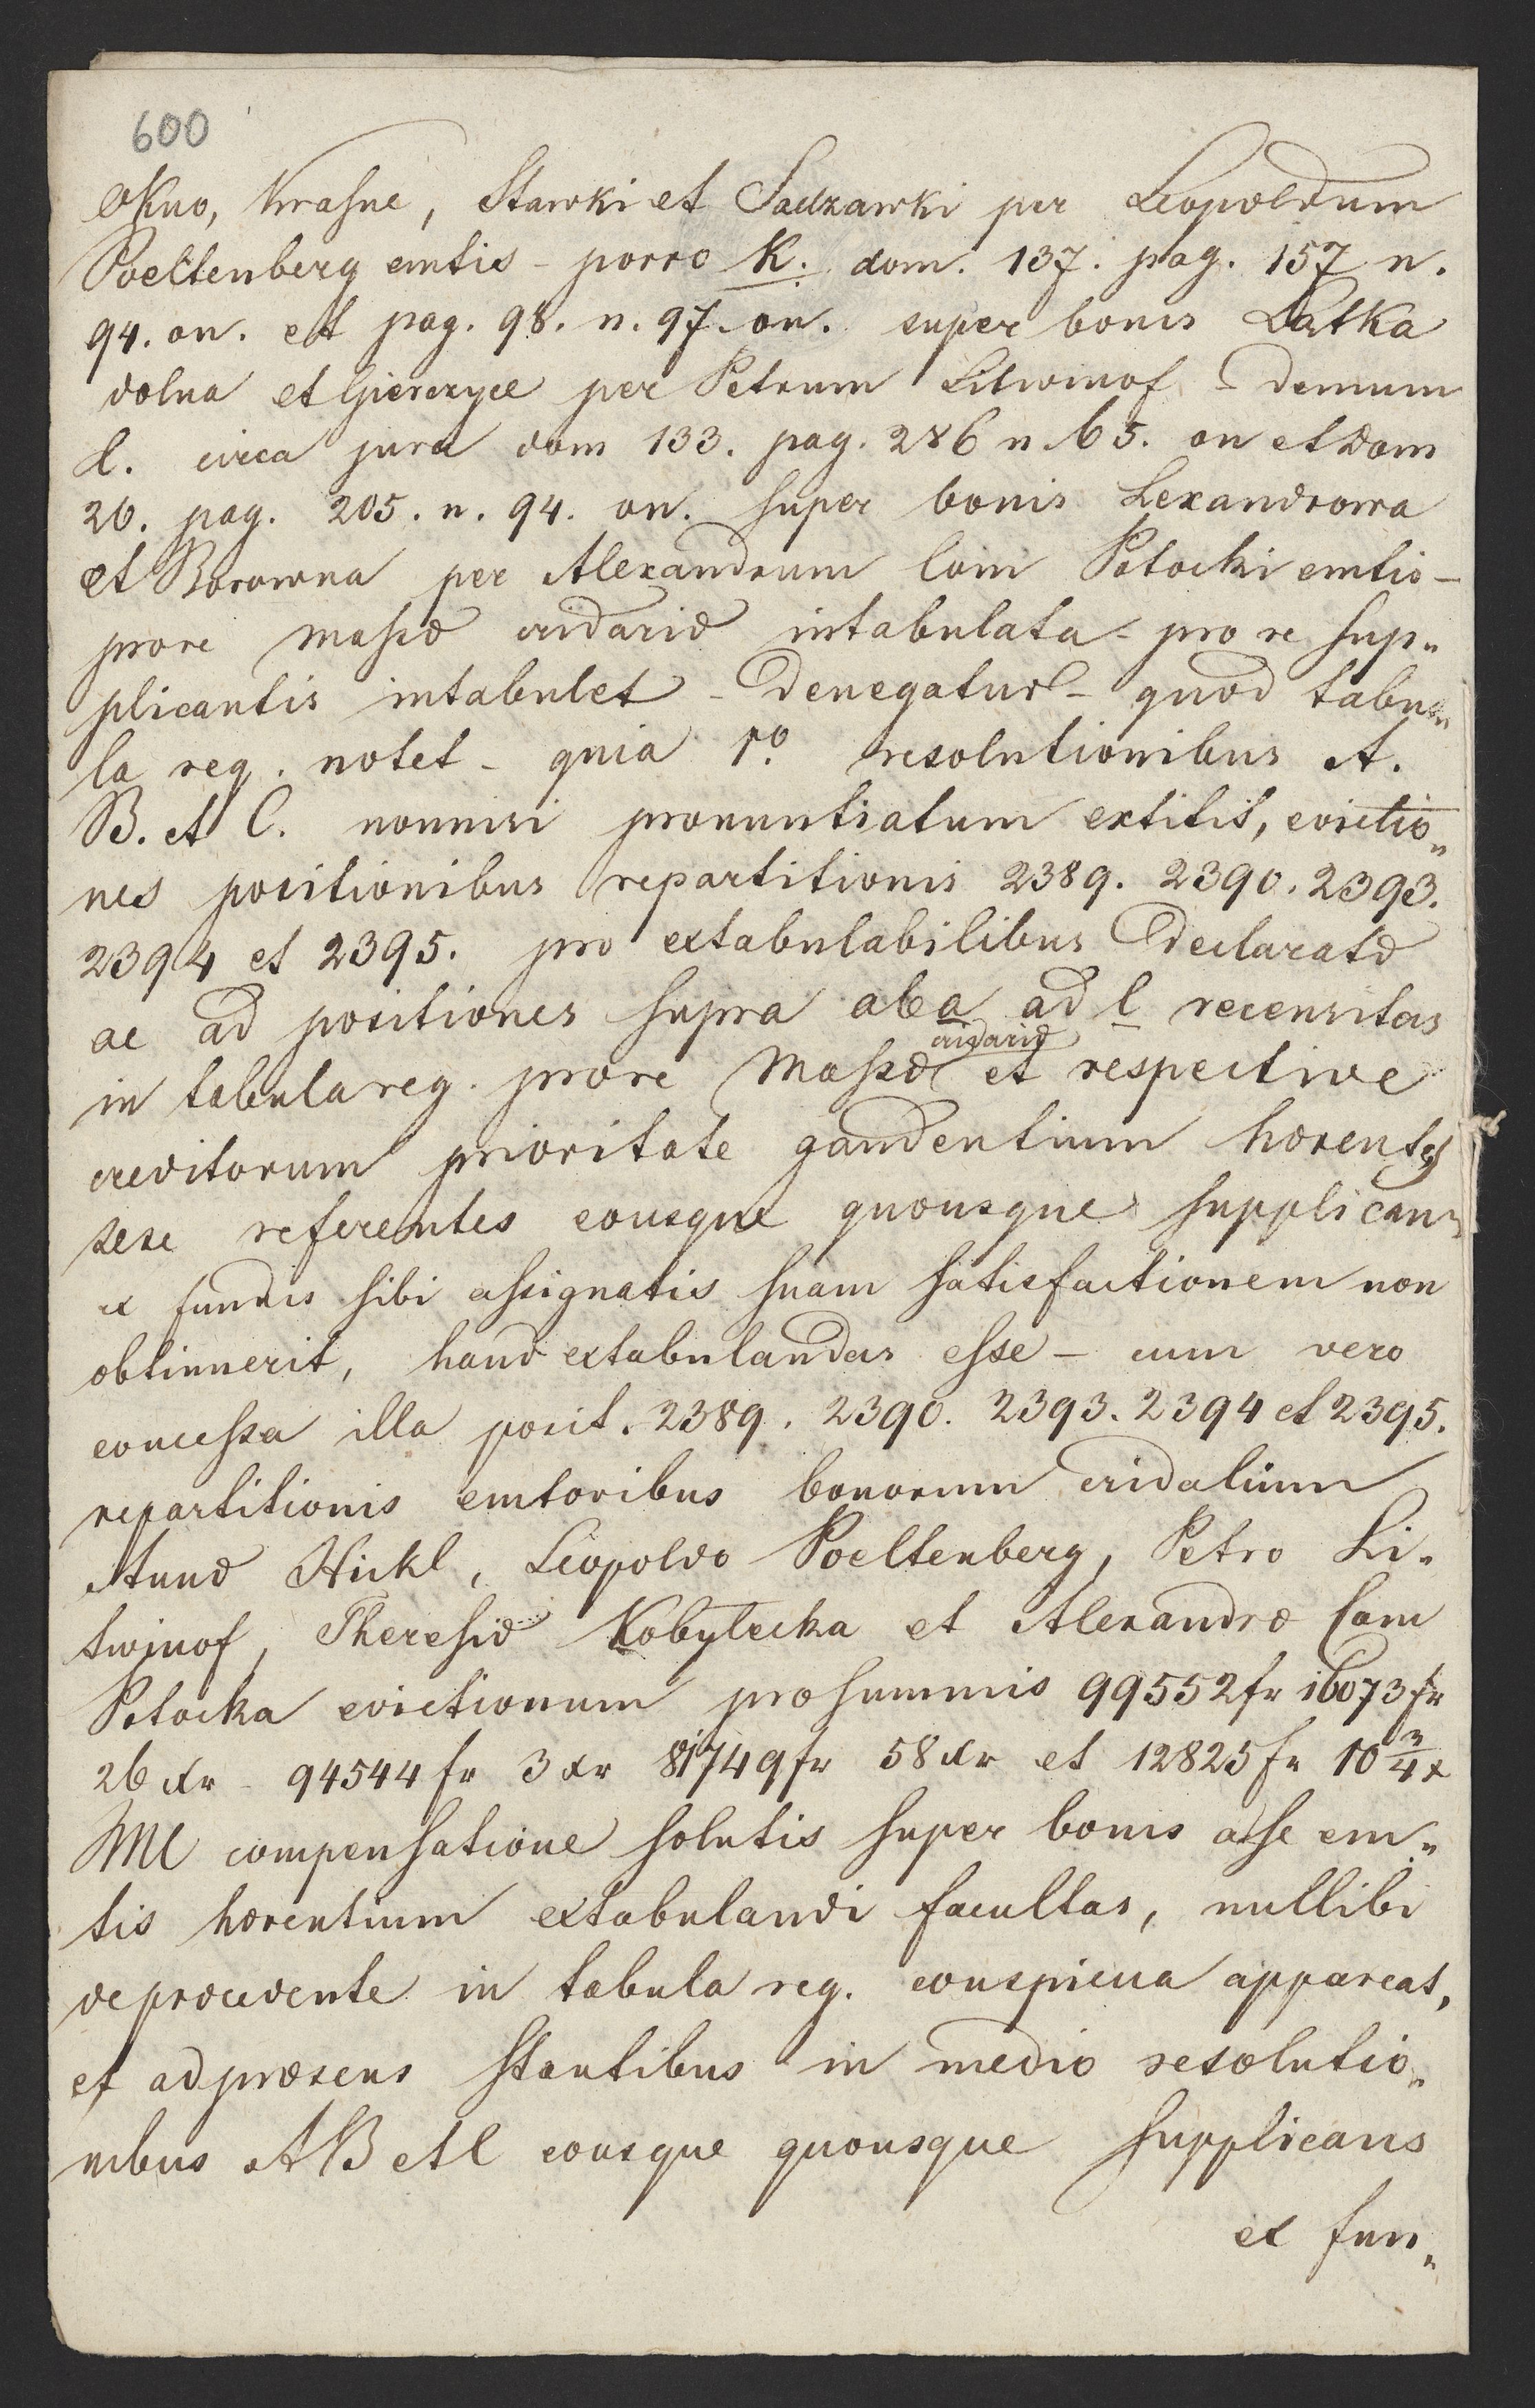 600
Okno, Krasne, Stawki et Sadzawki per Leopoldum
Poeltenberg emtis - porro K. dom. 137. pag. 157 n.
94. on. et pag. 98. n. 97. on. super bonis Latka
dolna et Giereczyce per Petrum Litwinof - demum
l. circa jura dom 133. pag. 286 n. 65. on et dom
26. pag. 205. n. 94. on. super bonis Lexandrowa
et Borowna per Alexandrum Com Potocki emtis -
prore massæ cridariæ intabulata - pro re sup„
plicantis intabulet - denegatur - quod tabu„
la reg. notet - quia 1o. resolutionibus A.
B. et C. nonnisi pronuntiatum extitit, evictio„
nes positionibus repartitionis 2389. 2390. 2393.
2394 et 2395. pro extabulabilibus declaratæ
ac ad positiones supra ab a ad l recensitas
in tabula reg. prore Massæ cridariæ et respective
creditorum prioritate gaudentium hærentes
sese referentes eousque quousque supplicans
ex fundis sibi assignatis suam satisfactionem non
obtinuerit, haud extabulandas esse - cum vero
concessa illa posit. 2389. 2390. 2393. 2394 et 2395.
repartitionis emtoribus bonorum cridalium
Annæ Nickl, Leopoldo Poeltenberg, Petro Li„
twinof, Theresiæ Kobylecka et Alexandro Com
Potocka evictionum pro summis 99552 fr 16073 fr
26 xr - 94544 fr 3 xr 81749 fr 58 xr et 12825 fr 10 3/4 x
MC compensatione solutis super bonis a se em„
tis hærentium extabulandi facultas, nullibi
deprocedente in tabula reg. conspicua appareat,
et ad præsens stantibus in medio resolutio„
nibus A B et C eousque quousque supplicans
ex fun„